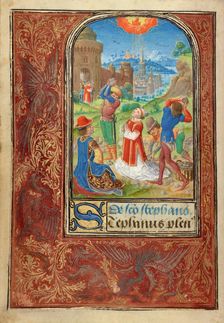 De sc̄o stephano.
Stephanus plen